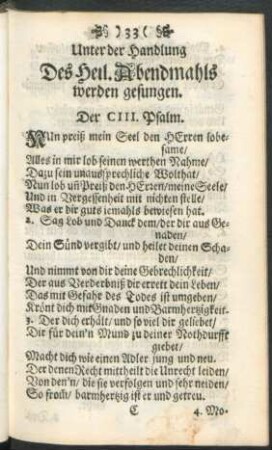 ) 33 (
Unter der Handlung
Des Heil. Abendmahls
werden gesungen.
Der CIII. Psalm.
NUn preiß mein Seel den HErren lobe-
same/
Alles in mir lob seinen werthen Nahme/
Dazu sein unaussprechliche Wolthat/
Nun lob uñ Preiß den HErzen/ meine Seele/
Und in Vergessenheit mit nichten stelle/
Was er dir guts iemahls bewiesen hat.
2. Sag Lob und Danck dem/ der dir aus Ge-
naden/
Dein Sünd vergibt/ und heilet deinen Scha-
den/
Und nimmt von dir deine Gebrechlichkeit/
Der aus Verderbniß dir errett dein Leben/
Das mit Gefahr des Todes ist umgeben/
Krönt dich mit Gnaden und Barmhertzigkeit.
3. Der dich erhält/ und so viel dir geliebet/
Dir für dein'n Mund zu deiner Nothdurfft
giebet/
Macht dich wie einen Adler jung und neu.
Der denen Recht mittheilt die Unrecht leiden/
Von den'n/ die sie verfolgen und sehr neiden/
So from/ barmhertzig ist er und getreu.
C 4. Mo-